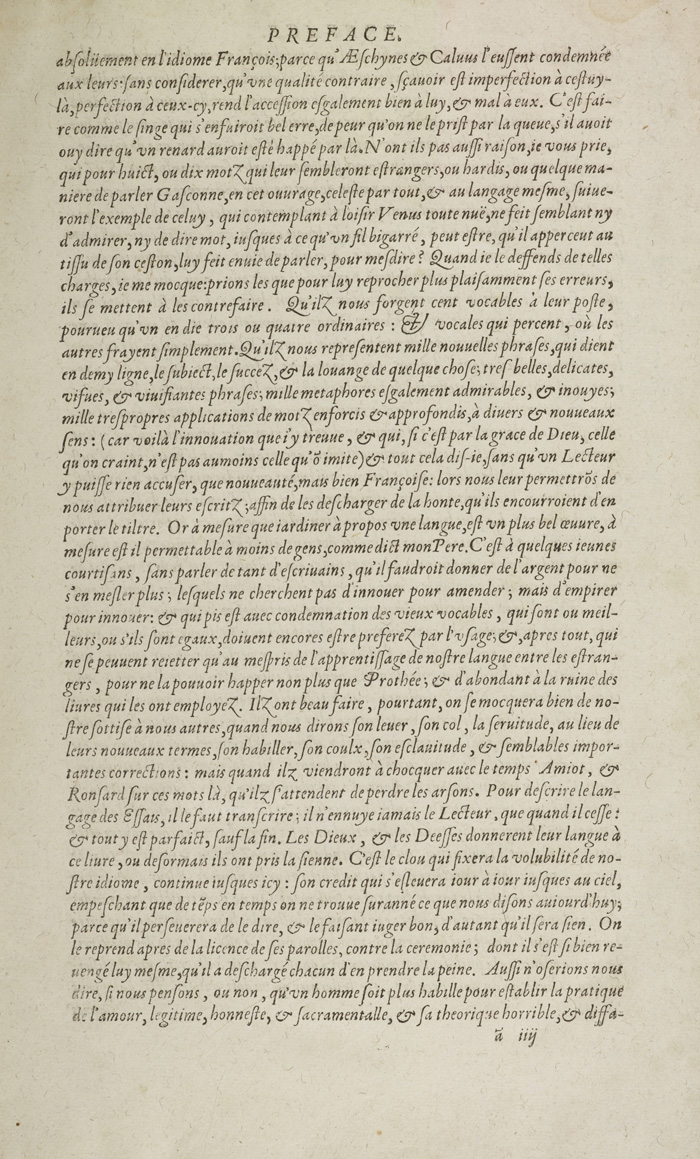 PREFACE.
absolüement en l'idiome François; parce qu'Æschynes & Caluus l'eussent condemnée
aux leurs: sans considerer, qu'vne qualité contraire, sçauoir est imperfection à cestuy-
là, perfection à ceux-cy, rend l'accession esgalement bien à luy, & mal à eux. C'est fai-
re comme le singe qui s'enfuiroit bel erre, de peur qu'on ne le prist par la queue, s'il auoit
ouy dire qu'vn renard auroit esté happé par là. N'ont ils pas aussi raison, ie vous prie,
qui pour huict, ou dix motz qui leur sembleront estrangers, ou hardis, ou quelque ma-
niere de parler Gasconne, en cet ouurage, celeste par tout, & au langage mesme, suiue-
ront l'exemple de celuy, qui contemplant à loisir Venus toute nuë, ne feit semblant ny
d'admirer, ny de dire mot, iusques à ce qu'vn fil bigarré, peut estre, qu'il apperceut au
tissu de son ceston, luy feit enuie de parler, pour mesdire? Quand ie le deffends de telles
charges, ie me mocque: prions les que pour luy reprocher plus plaisamment ses erreurs,
ils se mettent à les contrefaire. Qu'ilz nous forgent cent vocables à leur poste,
pourueu qu'vn en die trois ou quatre ordinaires: & vocales qui percent, où les
autres frayent simplement. Qu'ilz nous representent mille nouuelles phrases, qui dient
en demy ligne, le subiect, le succez, & la louange de quelque chose; tres belles, delicates,
vifues, & viuifiantes phrases; mille metaphores esgalement admirables, & inouyes;
mille trespropres applications de motz enforcis & approfondis, à diuers & nouueaux
sens: (car voilà l'innouation que i'y treuue, & qui, si c'est par la grace de Dieu, celle
qu'on craint, n'est pas aumoins celle qu'õ imite) & tout cela dis-ie, sans qu'vn Lecteur
y puisse rien accuser, que nouueauté, mais bien Françoise: lors nous leur permettrõs de
nous attribuer leurs escritz; affin de les descharger de la honte, qu'ils encourroient d'en
porter le tiltre. Or à mesure que iardiner à propos vne langue, est vn plus bel œuure, à
mesure est il permettable à moins de gens, comme dict mon Pere. C'est à quelques ieunes
courtisans, sans parler de tant d'escriuains, qu'il faudroit donner de l'argent pour ne
s'en mesler plus; lesquels ne cherchent pas d'innouer pour amender; mais d'empirer
pour innouer: & qui pis est auec condemnation des vieux vocables, qui sont ou meil-
leurs, ou s'ils sont egaux, doiuent encores estre preferez par l'vsage; &, apres tout, qui
ne se peuuent reietter qu'au mespris de l'apprentissage de nostre langue entre les estran-
gers, pour ne la pouuoir happer non plus que Prothée; & d'abondant à la ruine des
liures qui les ont employez. Ilz ont beau faire, pourtant, on se mocquera bien de no-
stre sottise à nous autres, quand nous dirons son leuer, son col, la seruitude, au lieu de
leurs nouueaux termes, son habiller, son coulx, son esclauitude, & semblables impor-
tantes corrections: mais quand ilz viendront à chocquer auec le temps Amiot, &
Ronsard sur ces mots là, qu'ilz s'attendent de perdre les arsons. Pour descrire le lan-
gage des Essais, il le faut transcrire; il n'ennuye iamais le Lecteur, que quand il cesse:
& tout y est parfaict, sauf la fin. Les Dieux, & les Deesses donnerent leur langue à
ce liure, ou desormais ils ont pris la sienne. C'est le clou qui fixera la volubilité de no-
stre idiome, continue iusques icy: son credit qui s'esleuera iour à iour iusques au ciel,
empeschant que de tẽps en temps on ne trouue suranné ce que nous disons auiourd'huy;
parce qu'il perseuerera de le dire, & le faisant iuger bon, d'autant qu'il sera sien. On
le reprend apres de la licence de ses parolles, contre la ceremonie; dont il s'est si bien re-
uengé luy mesme, qu'il a deschargé chacun d'en prendre la peine. Aussi n'oserions nous
dire, si nous pensons, ou non, qu'vn homme soit plus habille pour establir la pratique
de l'amour, legitime, honneste, & sacramentalle, & sa theorique horrible, & diffa-
ã iiij